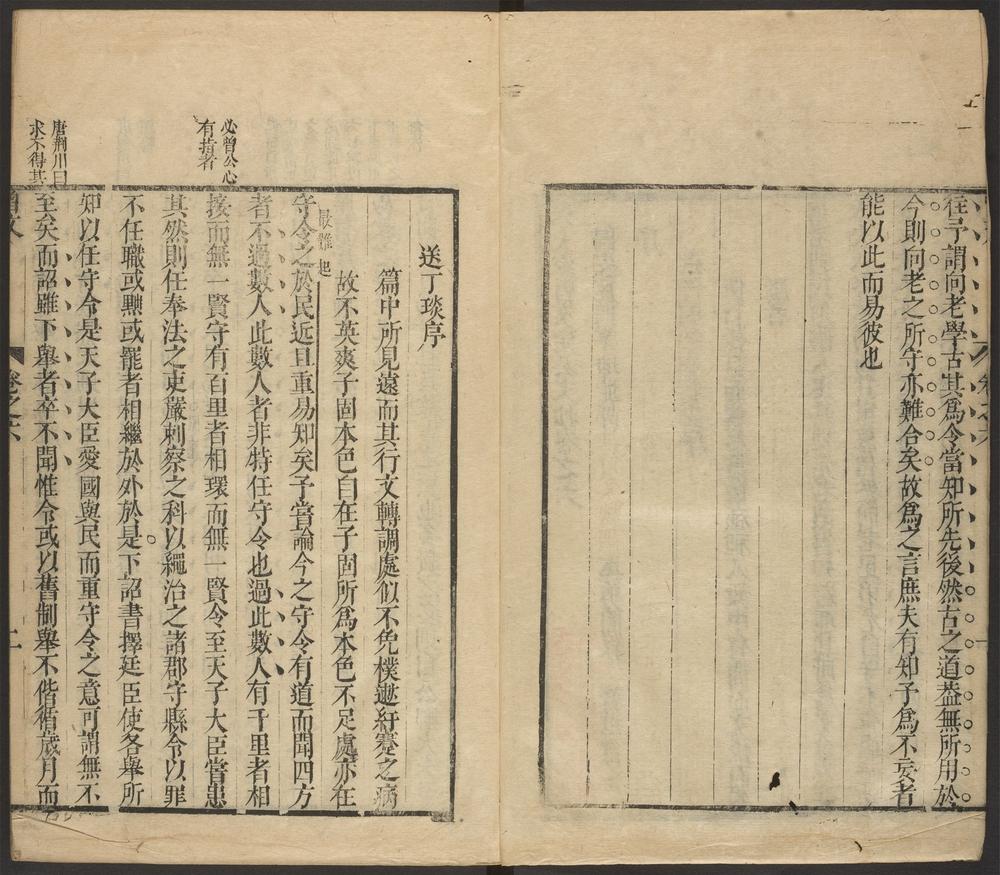 往予謂向老學古其爲令當知所先後然古之道葢無所用於
今則向老之所守亦難合矣故爲之言庶夫有知予爲不妄者
能以此而易彼也
送丁琰序
篇中所見遠而其行文轉調處似不免樸遬紆蹇之病
故不英爽子固本色自在子固所爲本色不足處亦在
最難起
守令之於民近且重易知矣予嘗論今之守令有道而聞四方
者不過數人此數人者非特任守令也過此數人有千里者相
必曾公心
有指者
接而無一賢守有百里者相環而無一賢令至天子大臣嘗患
其然則任奉法之吏嚴刺察之科以繩治之諸郡守縣令以罪
不任職或黜或罷者相繼於外於是下詔書擇廷臣使各舉所
知以任守令是天子大臣愛國與民而重守令之意可謂無不
唐荆川曰
求不得其
至矣而詔雖下舉者卒不聞惟令或以舊制舉不偕循歲月而
卷之六